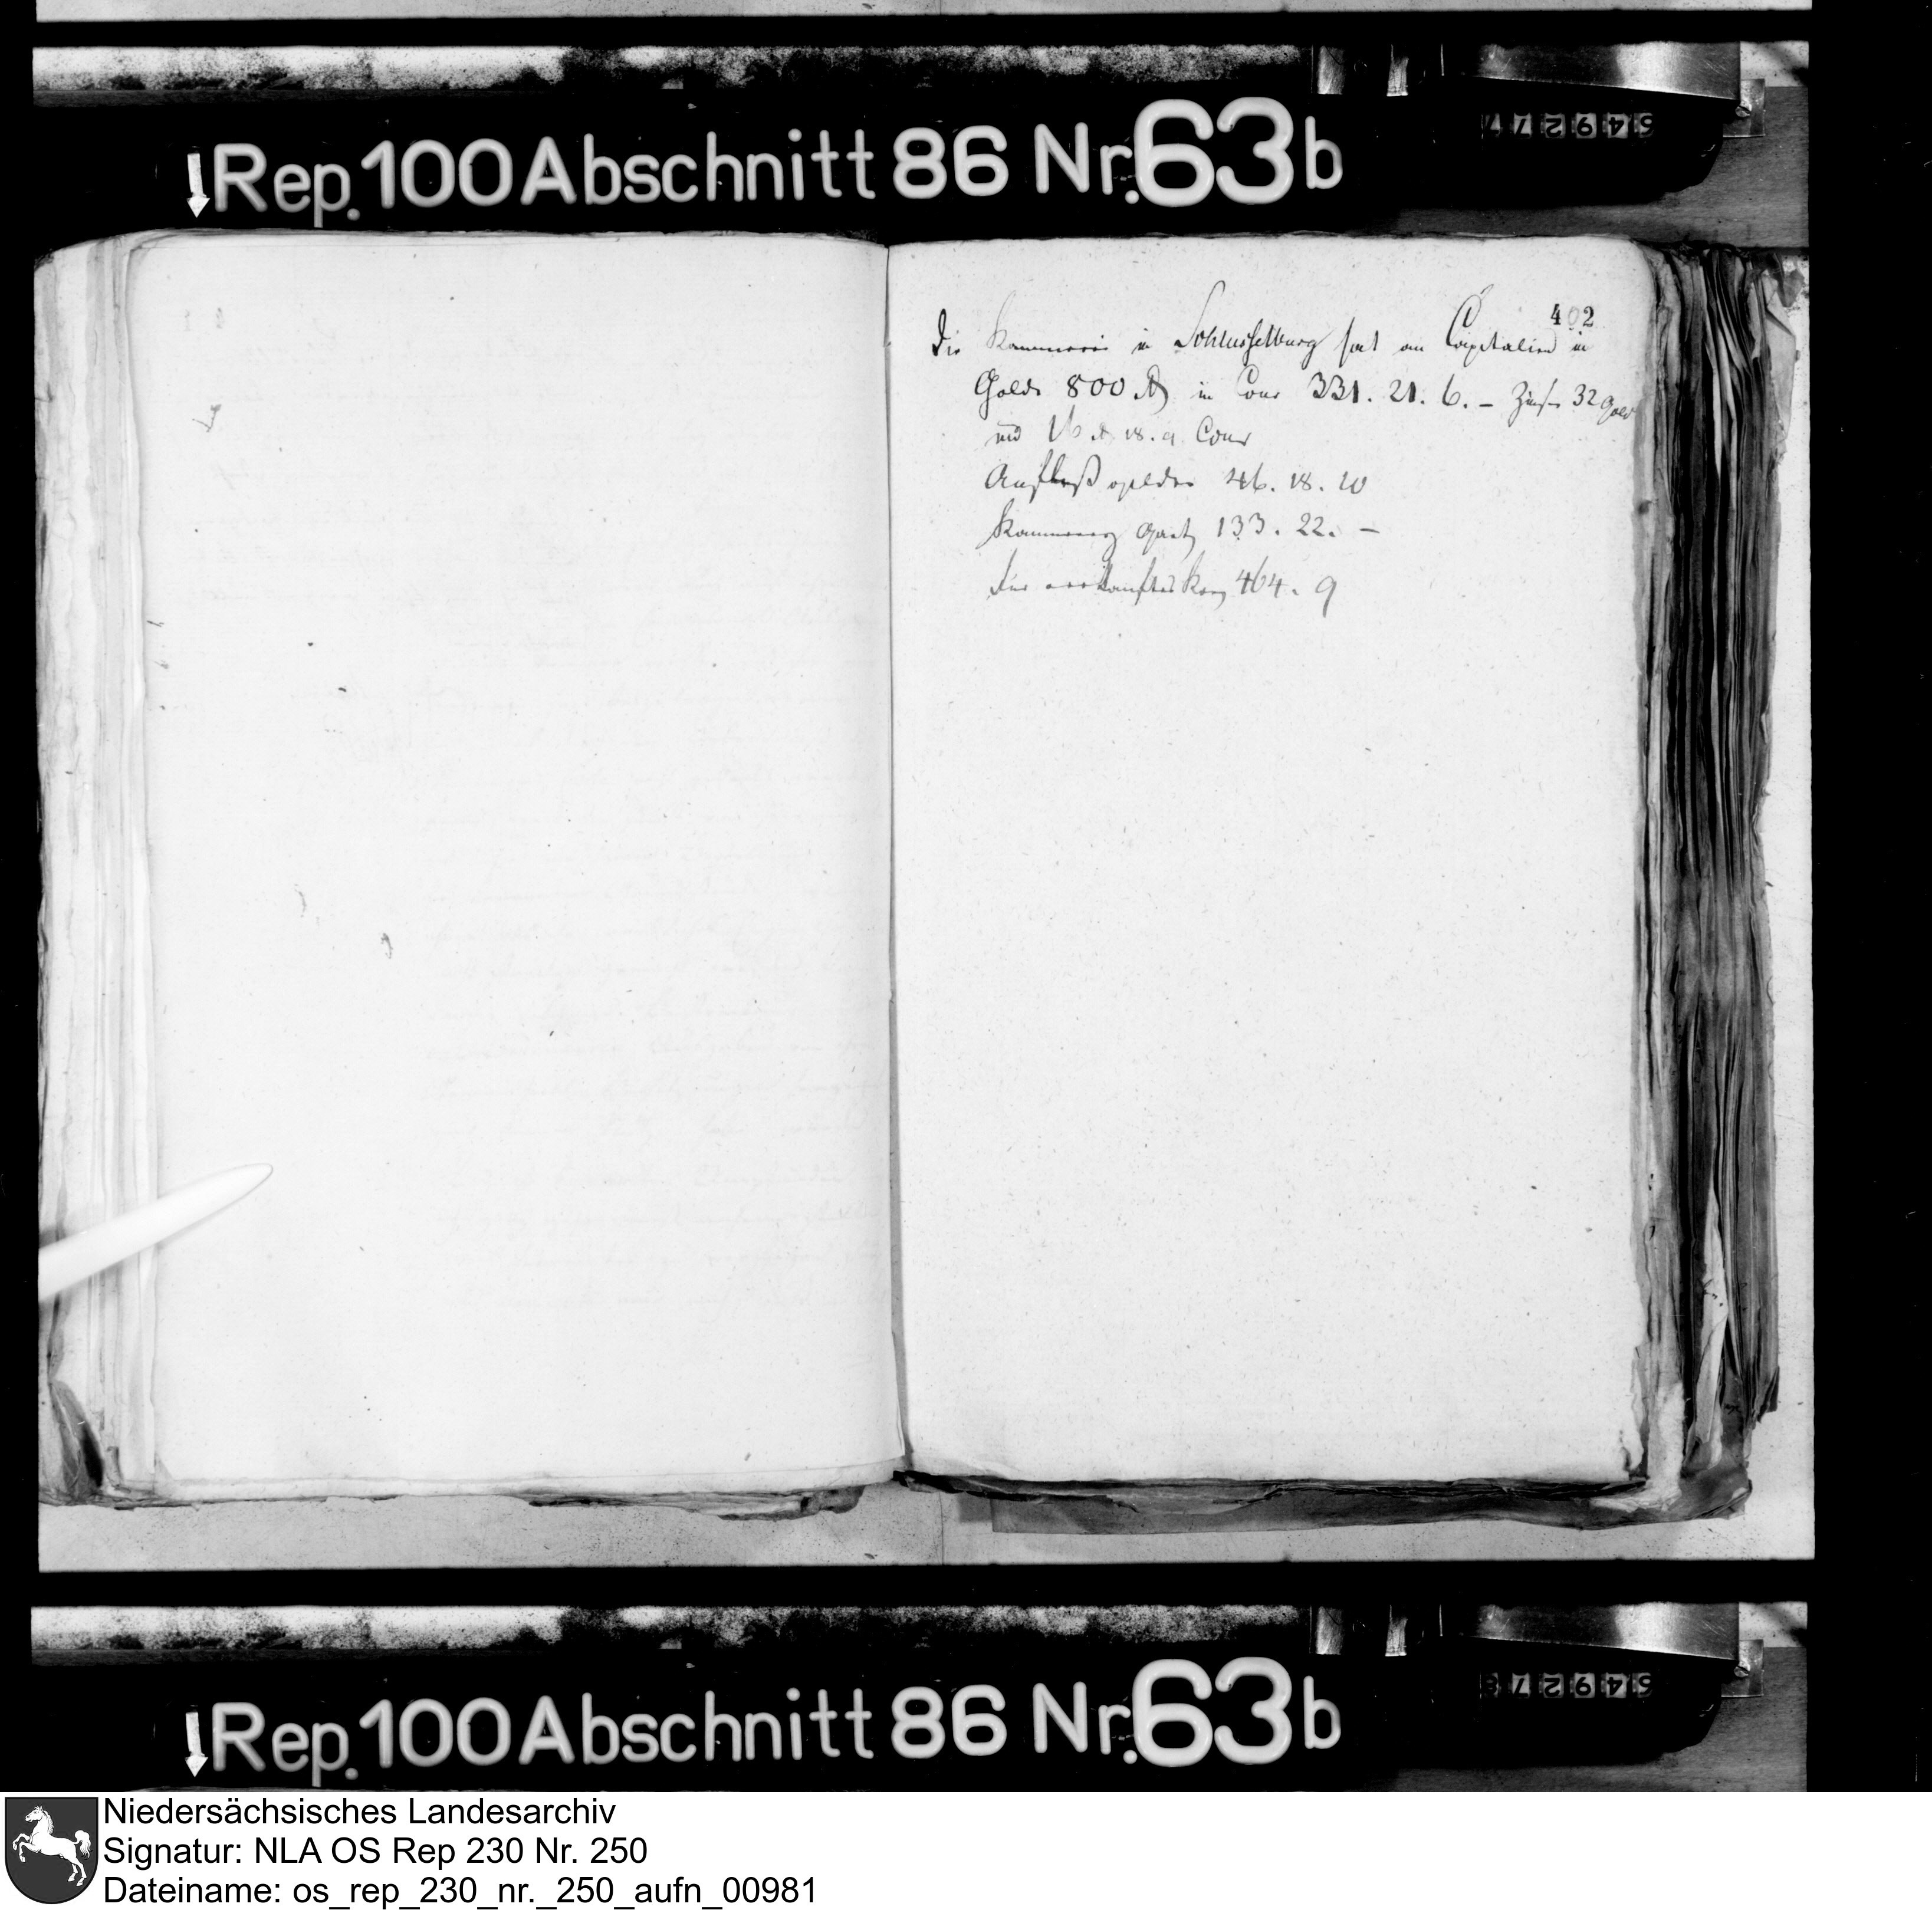 Rep. 100 Abschnitt 86 Nr. 63b
549277
402
Die Kämmerei in Schlüsselburg hat an Capitalien in
Golde 800 in Cour 331. 21. 6. – Zinse 32 Gold
und 16 18. 9 Cour
46. 18. 10
133. 22. –
Für verkauftes Korn 464. 9
Rep. 100 Abschnitt 86 Nr. 63b
549278
Niedersächsisches Landesarchiv
Signatur: NLA OS Rep 230 Nr. 250
Dateiname: os_rep_230_nr._250_aufn_00981